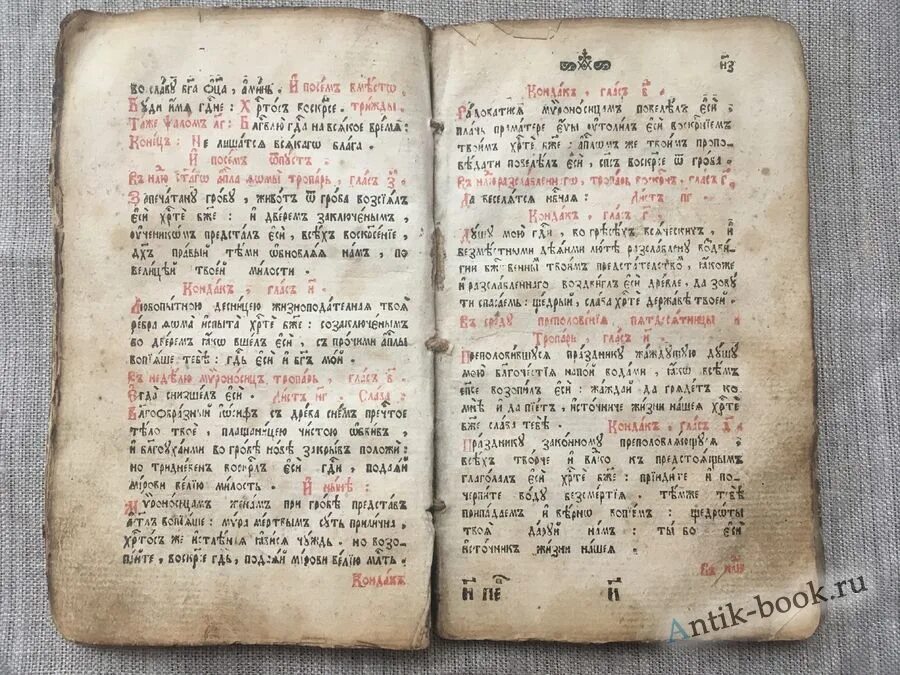 во славꙋ бг҃а ѻ҆ц҃а, а҆ми́нь. И҆ посемъ вмѣстѡ
Бꙋди и҆мѧ гдⷭ҇не : Хрⷭ҇тосъ воскр҃се. трижды.
Таже ѱаломъ л҃г : Бл҃гвлю̀ гдⷭ҇а на всѧкое времѧ :
Конецъ : Не лишатсѧ всѧкагѡ блага.
И҆ посемъ ѿпꙋстъ.
Въ нлⷣю ст҃агѡ а҆пⷭ҇ла ѳѡмы̀ тропарь, гласъ з҃.
Запечатанꙋ гробꙋ, животъ ѿ гроба возсїѧлъ
є҆сѝ хрⷭ҇те бж҃е : и҆ дверемъ заключєнымъ,
ѹ҆ченикѡмъ предсталъ є҆сѝ, всѣхъ воскресенїе,
дх҃ъ правый тѣми ѡ҆бновлѧѧ намъ, по
велицѣй твоей милости.
Кондакъ, гласъ и҃.
Любопытною десницею жизноподателнаѧ твоѧ
ребра ѳѡма̀ и҆спыта хрⷭ҇те бж҃е : созаключенымъ
бо дверемъ ꙗ҆кѡ вшелъ є҆сѝ, съ прочими а҆пⷭ҇лы
вопїѧше тебѣ : гдⷭ҇ь є҆сѝ и҆ бг҃ъ мой.
Въ недѣлю мѵроносицъ тропарь, гласъ в҃.
Є҆гда̀ снизшелъ є҆сѝ. Листъ п҃г. Слава.
Благоѻбразный і҆ѡсифъ с древа снемъ преч҇тое
тѣло твоѐ, плащаницею чистою ѡ҆бвивъ,
и҆ благоꙋханми во гробѣ новѣ закрывъ положи :
но тридневенъ воскр҃лъ є҆сѝ гдⷭ҇и, подаѧй
мирови велїю милость. И҆ нынѣ :
Мѵроносицамъ женамъ при гробѣ представъ
а҆гг҃лъ вопїѧше : мѵра мертвымъ сꙋть прилична,
хрⷭ҇тосъ же и҆стлѣнїѧ ꙗ҆висѧ чꙋждъ. но возо
пїйте, воскр҃се гдⷭ҇ь, подаѧй мирови велїю мл҇ть.
Кондакъ
п҃з
Кондакъ, гласъ в҃.
Радоватисѧ мѵроносицамъ повелѣлъ є҆сѝ,
плачь праматере є҆ѵы ѹ҆толилъ є҆сѝ воскр҇нїемъ
твоимъ хрⷭ҇те бж҃е : а҆пⷭ҇лѡмъ же твоимъ пропо
вѣдати повелѣлъ є҆сѝ, сп҃съ воскр҃се ѿ гроба.
Въ нлⷣю разслабленнагѡ, тропарь воскр҇нъ, гласъ г҃.
Да веселѧтсѧ нб҇наѧ : Листъ п҃г.
Кондакъ, гласъ г҃.
Дꙋшꙋ мою̀ гдⷭ҇и, во грѣсѣхъ всѧческихъ, и҆
безмѣстными дѣѧнїи лютѣ разслабленꙋ воздви
гни бжⷭ҇твеннымъ твоимъ предстательствомъ, ꙗ҆коже
и҆ разслабленнаго воздвиглъ є҆сѝ древле. да зовꙋ
ти спасаемь : щедрый, слава хрⷭ҇те державѣ твоей.
Въ средꙋ преполовенїѧ пѧтдесѧтницы
Тропарь, гласъ и҃.
Преполовившꙋсѧ праздникꙋ жаждꙋщꙋю дꙋшꙋ
мою̀ благочестїѧ напой водами, ꙗ҆кѡ всѣмъ
сп҃се возопилъ є҆сѝ : жаждай да грѧдетъ ко
мнѣ̀ и҆ да пїетъ. и҆сточниче жизни нашеѧ хрⷭ҇те
бж҃е слава тебѣ. Кондакъ, гласъ д҃.
Праздникꙋ законномꙋ преполовлѧющꙋсѧ,
всѣхъ творче и҆ влⷣко къ предстоѧщымъ
глаголалъ є҆сѝ хрⷭ҇те бж҃е : прїидите и҆ по
черпите водꙋ безсмертїѧ. тѣмже тебѣ̀
припадаемъ и҆ вѣрнѡ вопїемъ : щедрѡты
твоѧ̀ дарꙋй намъ : ты̀ бо є҆сѝ
и҆сточникъ жизни нашеѧ.
Въ нлⷣю
Antik-book.ru